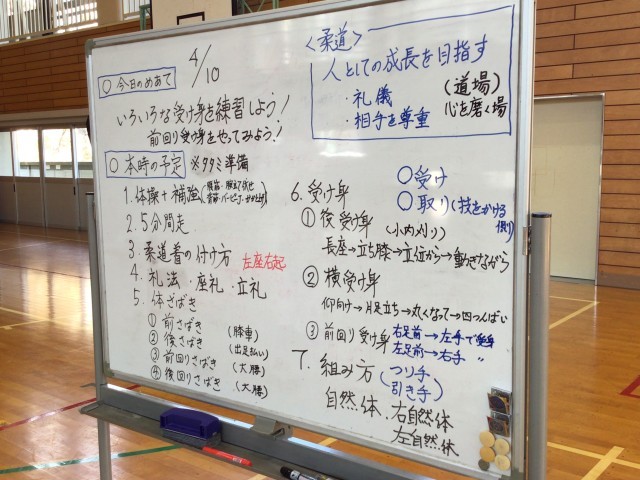 4/10
○ 今日のめあて
いろいろな受け身を練習しよう!
前回り受け身をやってみよう!
○ 本時の予定 ※タタミ準備
1. 体操+補強
2. 5分間走
3. 柔道着の付け方
左座右起
4. 礼法・座礼・立礼
5. 体さばき
① 前さばき (膝車)
② 後さばき (出足払い)
③ 前回りさばき (大腰)
④ 後回りさばき (大腰)
<柔道>
人としての成長を目指す
・礼儀
・相手を尊重
(道場)
心を磨く場
○受け
○取り(技をかける側)
6. 受け身
① 後受け身 (小内刈り)
長座→立ち膝→立位から→動きながら
② 横受け身
仰向け→片足立ち→丸くなって→四つんばい
③ 前回り受け身 右足前→左手で受身
左足前→右手 〃
7. 組み方 (つり手
引き手)
自然体・右自然体
左自然体